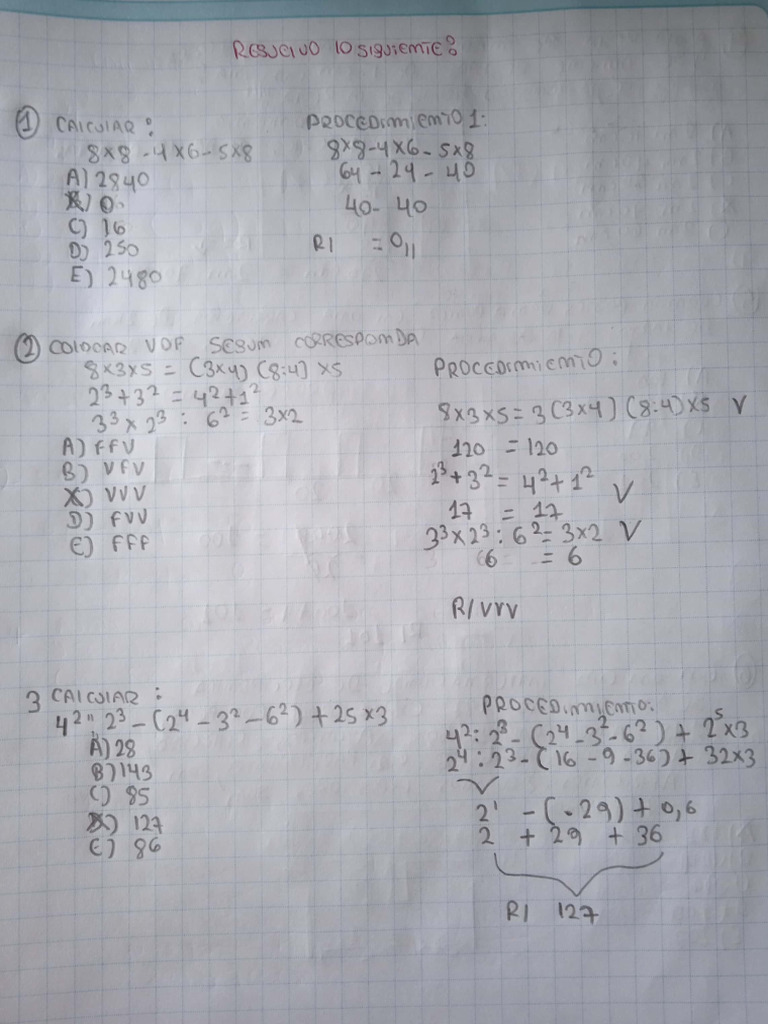 RESUELVO LO SIGUIENTE:
① CALCULAR:
8x8-4x6-5x8
A) 2840
B) 0
C) 16
D) 250
E) 2480
PROCEDIMIENTO 1:
8x8-4x6-5x8
64-24-40
40-40
R/ =0//
② COLOCAR V O F SEGUM CORRESPOMDA
8x3x5=(3x4)(8:4)x5
2³+3²=4²+1²
3³x2³:6²=3x2
A) FFV
B) VFV
C) VVV
D) FVV
E) FFF
PROCEDIMIEMTO:
8x3x5=3(3x4)(8:4)x5 V
120 = 120
2³+3²=4²+1² V
17 = 17
3³x2³:6²=3x2 V
6 = 6
R/VVV
3 CALCULAR:
4²:2³-(2⁴-3²-6²)+25x3
A) 28
B) 143
C) 85
D) 127
E) 86
PROCEDIMIEMTO:
4²:2³-(2⁴-3²-6²)+2⁵x3
2⁴:2³-(16-9-36)+32x3
2¹-(-29)+0,6
2+29+36
R/ 127